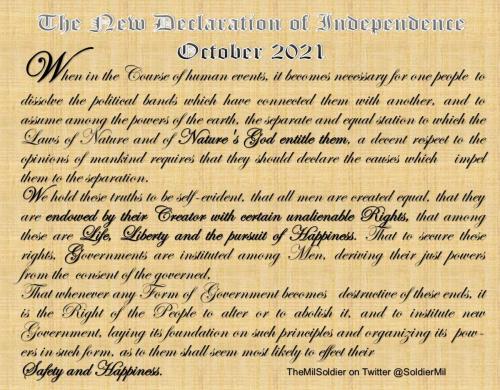 The New Declaration of Independence
October 2021
When in the Course of human events, it becomes necessary for one people to
dissolve the political bands which have connected them with another, and to
assume among the powers of the earth, the separate and equal station to which the
Laws of Nature and of Nature's God entitle them, a decent respect to the
opinions of mankind requires that they should declare the causes which impel
them to the separation.
We hold these truths to be self-evident, that all men are created equal, that they
are endowed by their Creator with certain unalienable Rights, that among
these are Life, Liberty and the pursuit of Happiness. That to secure these
rights, Governments are instituted among Men, deriving their just powers
from the consent of the governed,
That whenever any Form of Government becomes destructive of these ends, it
is the Right of the People to alter or to abolish it, and to institute new
Government, laying its foundation on such principles and organizing its pow-
ers in such form, as to them shall seem most likely to effect their
Safety and Happiness.
TheMilSoldier on Twitter @SoldierMil